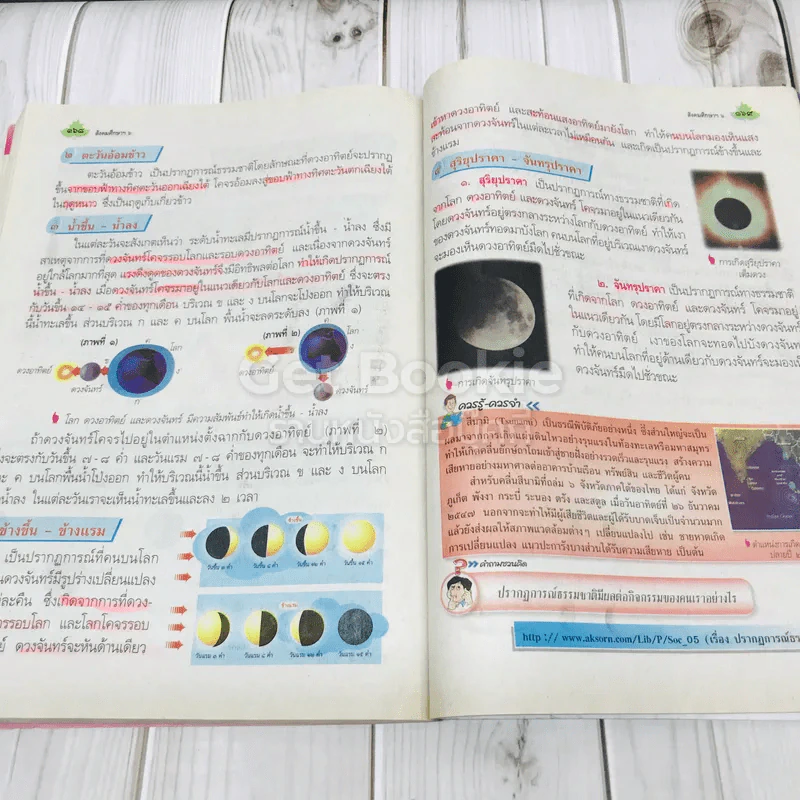 ๑๖๘ สังคมศึกษาฯ ๖
๒ ตะวันอ้อมข้าว
ตะวันอ้อมข้าว เป็นปรากฏการณ์ธรรมชาติโดยลักษณะที่ดวงอาทิตย์จะปรากฏ
ขึ้นจากขอบฟ้าทางทิศตะวันออกเฉียงใต้ โคจรอ้อมลงสู่ขอบฟ้าทางทิศตะวันตกเฉียงใต้
ในฤดูหนาว ซึ่งเป็นฤดูเก็บเกี่ยวข้าว
๓ น้ำขึ้น - น้ำลง
ในแต่ละวันจะสังเกตเห็นว่า ระดับน้ำทะเลมีปรากฏการณ์น้ำขึ้น - น้ำลง ซึ่งมี
สาเหตุจากการที่ดวงจันทร์โคจรรอบโลกและรอบดวงอาทิตย์ และเนื่องจากดวงจันทร์
อยู่ใกล้โลกมากที่สุด แรงดึงดูดของดวงจันทร์จึงมีอิทธิพลต่อโลก ทำให้เกิดปรากฏการณ์
น้ำขึ้น - น้ำลง เมื่อดวงจันทร์โคจรมาอยู่ในแนวเดียวกับโลกและดวงอาทิตย์ ซึ่งจะตรง
กับวันขึ้น ๑๔ - ๑๕ ค่ำของทุกเดือน บริเวณ ข และ ง บนโลกจะโป่งออก ทำให้บริเวณ
นี้น้ำทะเลขึ้น ส่วนบริเวณ ก และ ค บนโลก พื้นน้ำจะลดระดับลง (ภาพที่ ๑)
(ภาพที่ ๑)
โลก
ดวงอาทิตย์
ดวงจันทร์
(ภาพที่ ๒)
โลก
ดวงอาทิตย์
ดวงจันทร์
โลก ดวงอาทิตย์ และดวงจันทร์ มีความสัมพันธ์ทำให้เกิดน้ำขึ้น - น้ำลง
ถ้าดวงจันทร์โคจรไปอยู่ในตำแหน่งตั้งฉากกับดวงอาทิตย์ (ภาพที่ ๒)
ซึ่งจะตรงกับวันขึ้น ๗ - ๘ ค่ำ และวันแรม ๗ - ๘ ค่ำของทุกเดือน จะทำให้บริเวณ ก
ค บนโลกพื้นน้ำโป่งออก ทำให้บริเวณนี้น้ำขึ้น ส่วนบริเวณ ข และ ง บนโลก
น้ำลง ในแต่ละวันเราจะเห็นน้ำทะเลขึ้นและลง ๒ เวลา
ข้างขึ้น - ข้างแรม
เป็นปรากฏการณ์ที่คนบนโลก
ดวงจันทร์มีรูปร่างเปลี่ยนแปลง
คืน ซึ่งเกิดจากการที่ดวง-
รรอบโลก และโลกโคจรรอบ
ดวงจันทร์จะหันด้านเดียว
ข้างขึ้น
วันขึ้น ๓ ค่ำ วันขึ้น ๘ ค่ำ วันขึ้น ๑๒ ค่ำ วันขึ้น ๑๕ ค่ำ
ข้างแรม
วันแรม ๓ ค่ำ วันแรม ๘ ค่ำ วันแรม ๑๒ ค่ำ วันแรม ๑๕ ค่ำ
สังคมศึกษาฯ ๖ ๑๖๙
เข้าหาดวงอาทิตย์ และสะท้อนแสงอาทิตย์มายังโลก ทำให้คนบนโลกมองเห็นแสง
สะท้อนจากดวงจันทร์ในแต่ละเวลาไม่เหมือนกัน และเกิดเป็นปรากฏการณ์ข้างขึ้นและ
ข้างแรม
สุริยุปราคา - จันทรุปราคา
๑. สุริยุปราคา เป็นปรากฏการณ์ทางธรรมชาติที่เกิด
จากโลก ดวงอาทิตย์ และดวงจันทร์ โคจรมาอยู่ในแนวเดียวกัน
โดยดวงจันทร์อยู่ตรงกลางระหว่างโลกกับดวงอาทิตย์ ทำให้เงา
ของดวงจันทร์ทอดมาบังโลก คนบนโลกที่อยู่บริเวณเงาดวงจันทร์
จะมองเห็นดวงอาทิตย์มืดไปชั่วขณะ
การเกิดสุริยุปราคา
เต็มดวง
๒. จันทรุปราคา เป็นปรากฏการณ์ทางธรรมชาติ
ที่เกิดจากโลก ดวงอาทิตย์ และดวงจันทร์ โคจรมาอยู่
ในแนวเดียวกัน โดยมีโลกอยู่ตรงกลางระหว่างดวงจันทร์
กับดวงอาทิตย์ เงาของโลกจะทอดไปบังดวงจันทร์
ทำให้คนบนโลกที่อยู่ด้านเดียวกับดวงจันทร์จะมองเห็น
ดวงจันทร์มืดไปชั่วขณะ
การเกิดจันทรุปราคา
ควรรู้-ควรจำ
สึนามิ (Tsunami) เป็นธรณีพิบัติภัยอย่างหนึ่ง ซึ่งส่วนใหญ่จะเป็น
ผลมาจากการเกิดแผ่นดินไหวอย่างรุนแรงในท้องทะเลหรือมหาสมุทร
ทำให้เกิดคลื่นยักษ์ถาโถมเข้าสู่ชายฝั่งอย่างรวดเร็วและรุนแรง สร้างความ
เสียหายอย่างมหาศาลต่ออาคารบ้านเรือน ทรัพย์สิน และชีวิตผู้คน
สำหรับคลื่นสึนามิที่ถล่ม ๖ จังหวัดภาคใต้ของไทย ได้แก่ จังหวัด
ภูเก็ต พังงา กระบี่ ระนอง ตรัง และสตูล เมื่อวันอาทิตย์ที่ ๒๖ ธันวาคม
๒๕๔๗ นอกจากจะทำให้มีผู้เสียชีวิตและผู้ได้รับบาดเจ็บเป็นจำนวนมาก
แล้วยังส่งผลให้สภาพแวดล้อมต่างๆ เปลี่ยนแปลงไป เช่น ชายหาดเกิด
การเปลี่ยนแปลง แนวปะการังบางส่วนได้รับความเสียหาย เป็นต้น
ตำแหน่งการเกิด
คำถามชวนคิด
ปรากฏการณ์ธรรมชาติมีผลต่อกิจกรรมของคนเราอย่างไร
http://www.aksorn.com/Lib/P/Soc_05 (เรื่อง ปรากฏการณ์ธร
Get Bookie
ร้านหนังสือที่ผู้